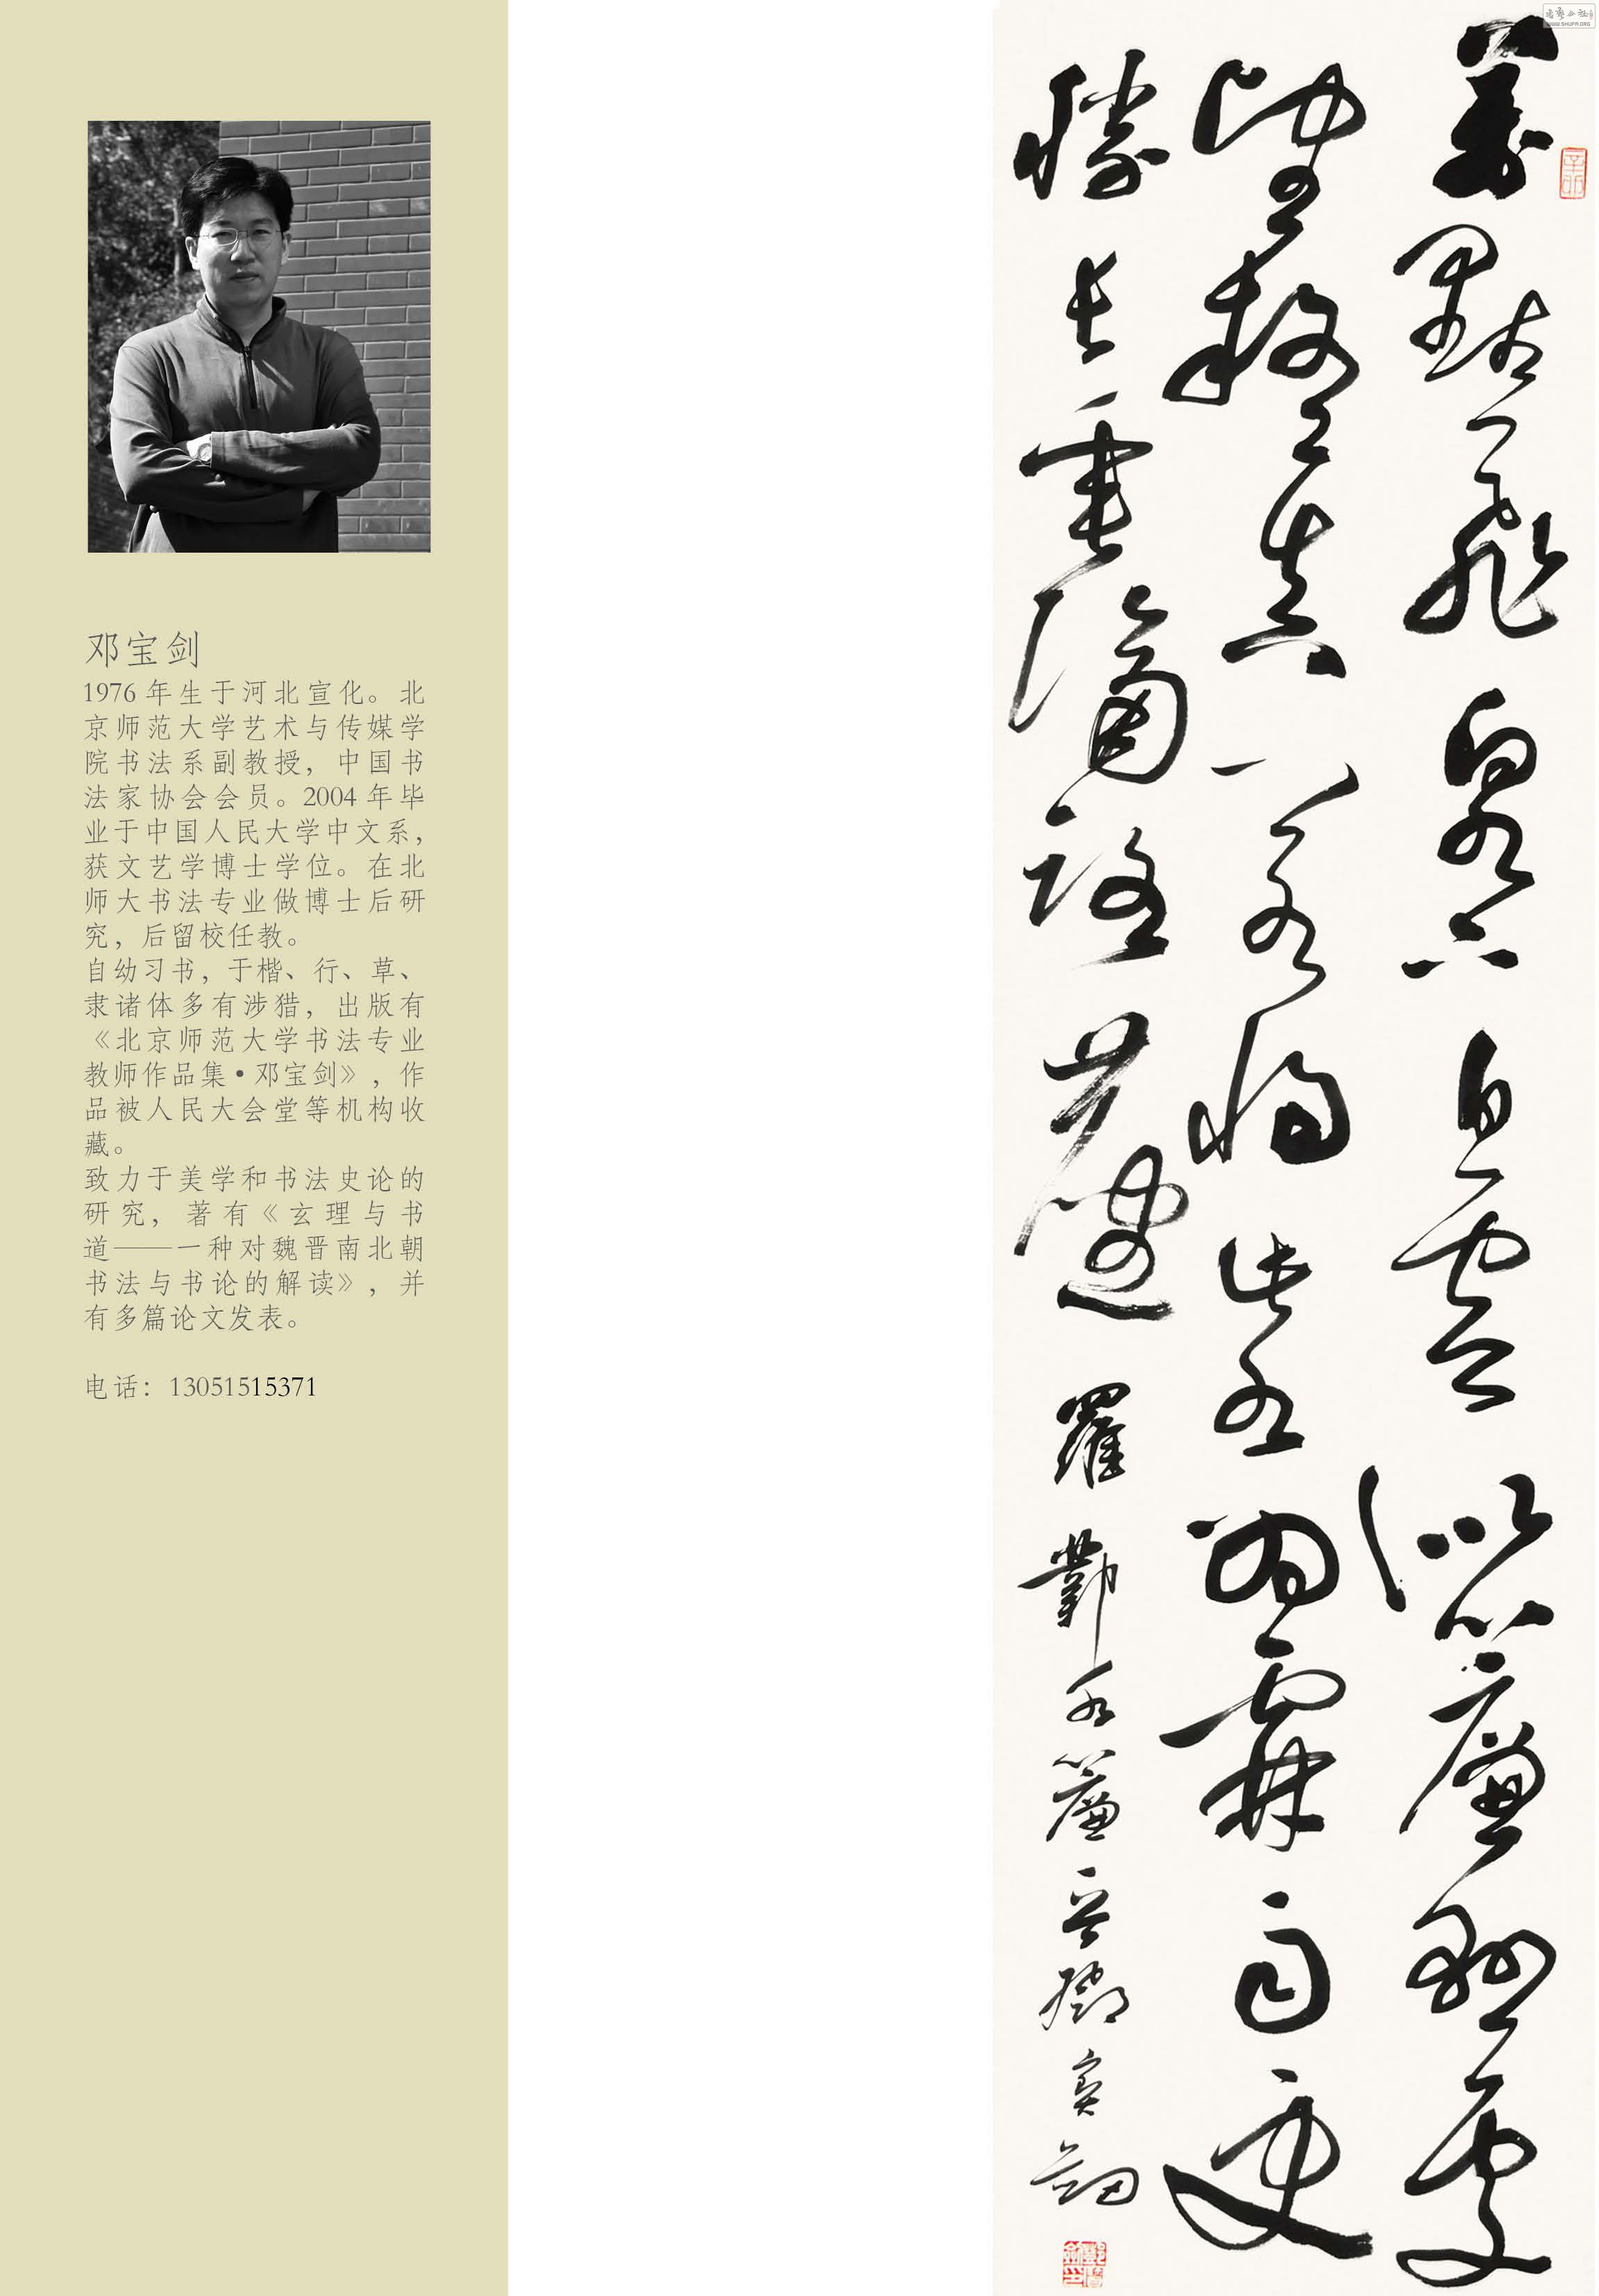 邓宝剑
1976 年生于河北宣化。北
京师范大学艺术与传媒学
院书法系副教授，中国书
法家协会会员。2004 年毕
业于中国人民大学中文系，
获文艺学博士学位。在北
师大书法专业做博士后研
究，后留校任教。
自幼习书，于楷、行、草、
隶诸体多有涉猎，出版有
《北京师范大学书法专业
教师作品集•邓宝剑》，作
品被人民大会堂等机构收
藏。
致力于美学和书法史论的
研究，著有《玄理与书
道——一种对魏晋南北朝
书法与书论的解读》，并
有多篇论文发表。
电话：13051515371
WWW.SHUFA.ORG
萬點飛泉下白雲似簾懸處
望疑真若將此水為霖雨更
勝長垂隔路塵 羅鄴水簾 鄧寶劍